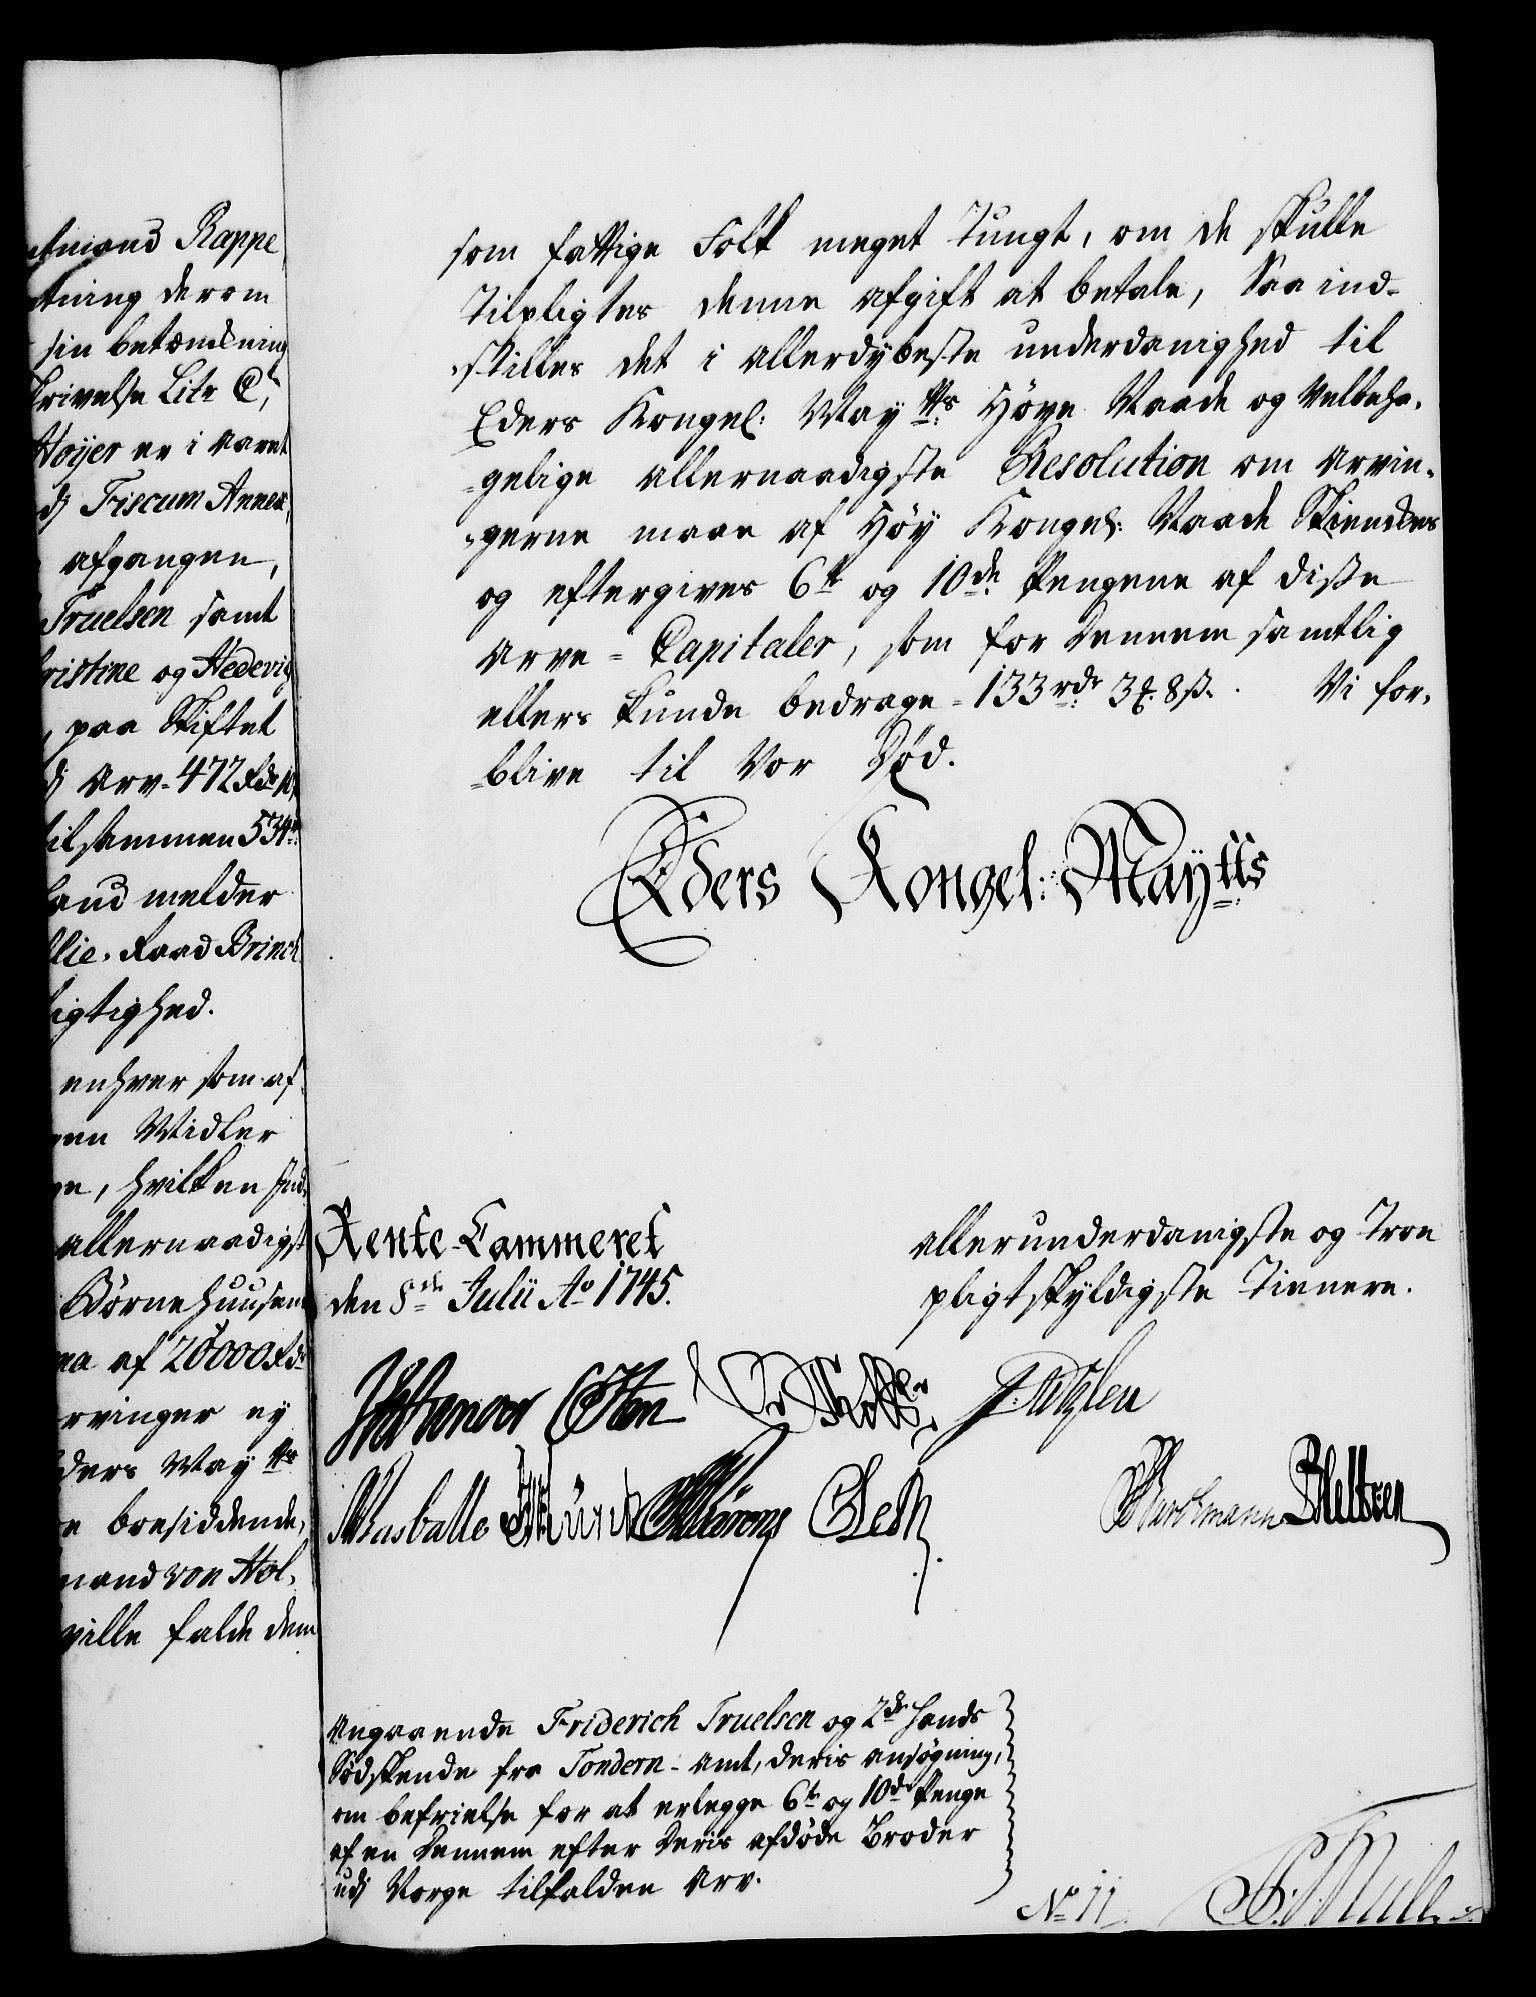 Rappe
tning derom
sin betænkning
skrivelse Litr C,
Hoyer er i Varet
dj Fiscum Annex,
afgangen,
Truelsen samt
ristine og Hedevig
paa Skiftet
dj Arv- 472 Rdr
tilsammen 534
hand melder
Raad Brinch
rigtighed.
enhver som af
Midler
hvilken Ind-
allernaadigst
Børnehuusen
af 20000 Rdr
rvinger ey
Eders May tts
boesiddende,
mand von Hol-
ville falde dem
som fattige Folk meget tungt, om de skulle
tilpligtes denne afgift at betale, Saa ind-
-stilles det i allerdybeste underdanighed til
Eders Kongel: May tts Høye Naade og Velbeha-
-gelige allernaadigste Resolution om Arvin-
-gerne maae af Høy Kongel: Naade Skienckes
og eftergives 6te og 10de Pengene af disse
Arve-Capitaler, som for dennem samtlig
ellers kunde bedrage - 133 rdr 3 ℔. 8 s. Vi for-
-blive til vor Død.
Eders Kongel: Maytts
Rente-Cammeret
den 8de Julii Ao 1745.
allerunderdanigste og Troe
pligtskyldigste Tienere.
Angaaende Friderich Truelsen og 2de hands
Sødskende fra Tondern-Amt, deris ansøgning,
om befrielse for at erlegge 6te og 10de Penge
af en dennem efter deris afdøde Broder
udj Norge tilfalden Arv.
No 11